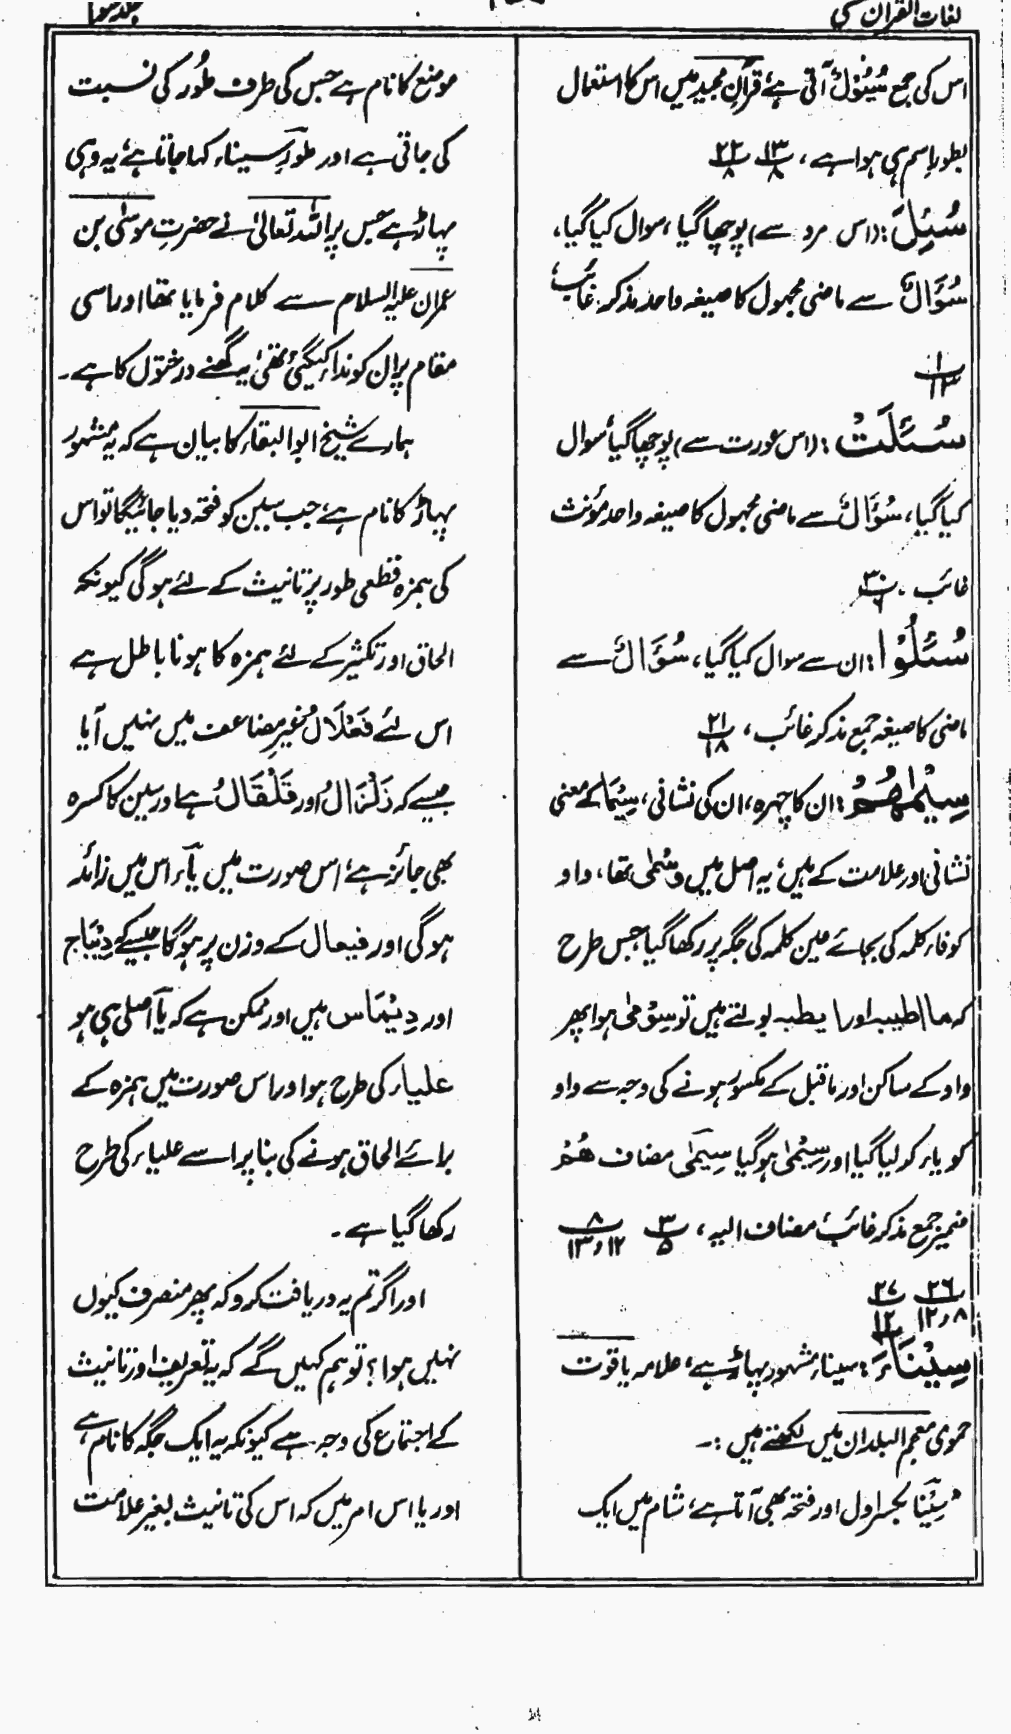 لغات القرآن
جلد سوم
اس کی جمع سُیُوْلٌ آتی ہے، قرآن مجید میں اس کا استعمال
بطور اسم ہی ہوا ہے، ۱۳/۸، ۲۲/۸
سُئِلَ : (اس مرد سے) پوچھا گیا، سوال کیا گیا،
سُؤَالٌ سے ماضی مجہول کا صیغہ واحد مذکر غائب
۱/۱۳
سُئِلَتْ : (اس عورت سے) پوچھا گیا، سوال
کیا گیا، سُؤَالٌ سے ماضی مجہول کا صیغہ واحد مؤنث
غائب، ۳۰
سُئِلُوْا : ان سے سوال کیا گیا، سُؤَالٌ سے
ماضی کا صیغہ جمع مذکر غائب، ۲۱/۱۸
سِیْمٰھُمْ : ان کا چہرہ، ان کی نشانی، سِیْمَا کے معنی
نشانی اور علامت کے ہیں، یہ اصل میں وَسْمٰی تھا، واو
کو فاء کلمہ کی بجائے عین کلمہ کی جگہ پر رکھا گیا جس طرح
کہ ما اطیبہ اور ایطبہ بولتے ہیں تو سِوْمٰی ہوا پھر
واو کے ساکن اور ماقبل کے مکسور ہونے کی وجہ سے واو
کو یاء کر لیا گیا اور سِیْمٰی ہو گیا سِیْمٰی مضاف ھُمْ
ضمیر جمع مذکر غائب مضاف الیہ، ۳/۵ ۸/۱۲،۱۳
۲۶/۸،۱۲ ۲۷/۱۲
سِیْنَآءَ : سیناء مشہور پہاڑ ہے، علامہ یاقوت
حموی معجم البلدان میں لکھتے ہیں :۔
"سِیْنا بکسر اول اور فتحہ بھی آتا ہے، شام میں ایک
موضع کا نام ہے جس کی طرف طُور کی نسبت
کی جاتی ہے اور طور سیناء کہا جاتا ہے، یہ وہی
پہاڑ ہے جس پر اللہ تعالیٰ نے حضرت موسٰی بن
عمران علیہ السلام سے کلام فرمایا تھا اور اسی
مقام پر ان کو ندا کی گئی تھی، یہ گھنے درختوں کا ہے۔
ہمارے شیخ ابو البقاء کا بیان ہے کہ یہ مشہور
پہاڑ کا نام ہے، جب سین کو فتحہ دیا جائیگا تو اس
کی ہمزہ قطعی طور پر تانیث کے لئے ہوگی کیونکہ
الحاق اور تکثیر کے لئے ہمزہ کا ہونا باطل ہے
اس لئے فَعْلَالٌ غیر مضاعف میں نہیں آیا
جیسے کہ زَلْزَالٌ اور قَلْقَالٌ ہے اور سین کا کسرہ
بھی جائز ہے، اس صورت میں یاء اس میں زائد
ہوگی اور فیعال کے وزن پر ہوگا جیسے کہ دِیْبَاج
اور دِیْمَاس ہیں اور ممکن ہے کہ یا اصلی ہی ہو
علیاء کی طرح ہوا اور اس صورت میں ہمزہ کے
برائے الحاق ہونے کی بنا پر اسے علیاء کی طرح
رکھا گیا ہے۔
اور اگر تم یہ دریافت کرو کہ پھر منصرف کیوں
نہیں ہوا؟ تو ہم کہیں گے کہ یہ تعریف اور تانیث
کے اجتماع کی وجہ ہے کیونکہ یہ ایک جگہ کا نام ہے،
اور یا اس امر میں کہ اس کی تانیث بغیر علامت